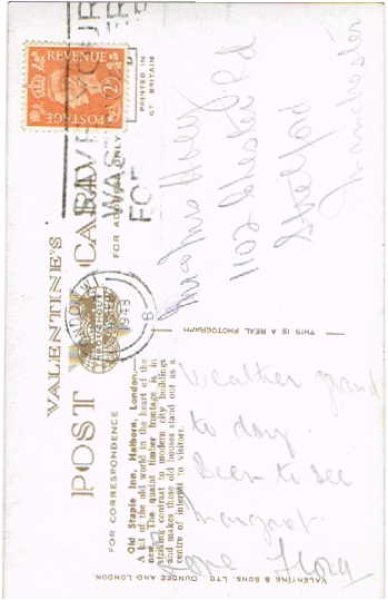 VALENTINE'S
POST CARD
REVENUE
POSTAGE
PRINTED IN
GT BRITAIN
FOR ADDRESS ONLY
FOR CORRESPONDENCE
Old Staple Inn, Holborn, London.—
A bit of the old world in the heart of the
new. The quaint timber frontage is in
striking contrast to modern city buildings
and makes these old houses stand out as a
centre of interest to visitors.
THIS IS A REAL PHOTOGRAPH
VALENTINE & SONS, LTD. DUNDEE AND LONDON
LONDON
1948
Weather grand
to day.
Been to see
Margaret.
Love Flora
1102 Chester Rd
Stretford
Manchester